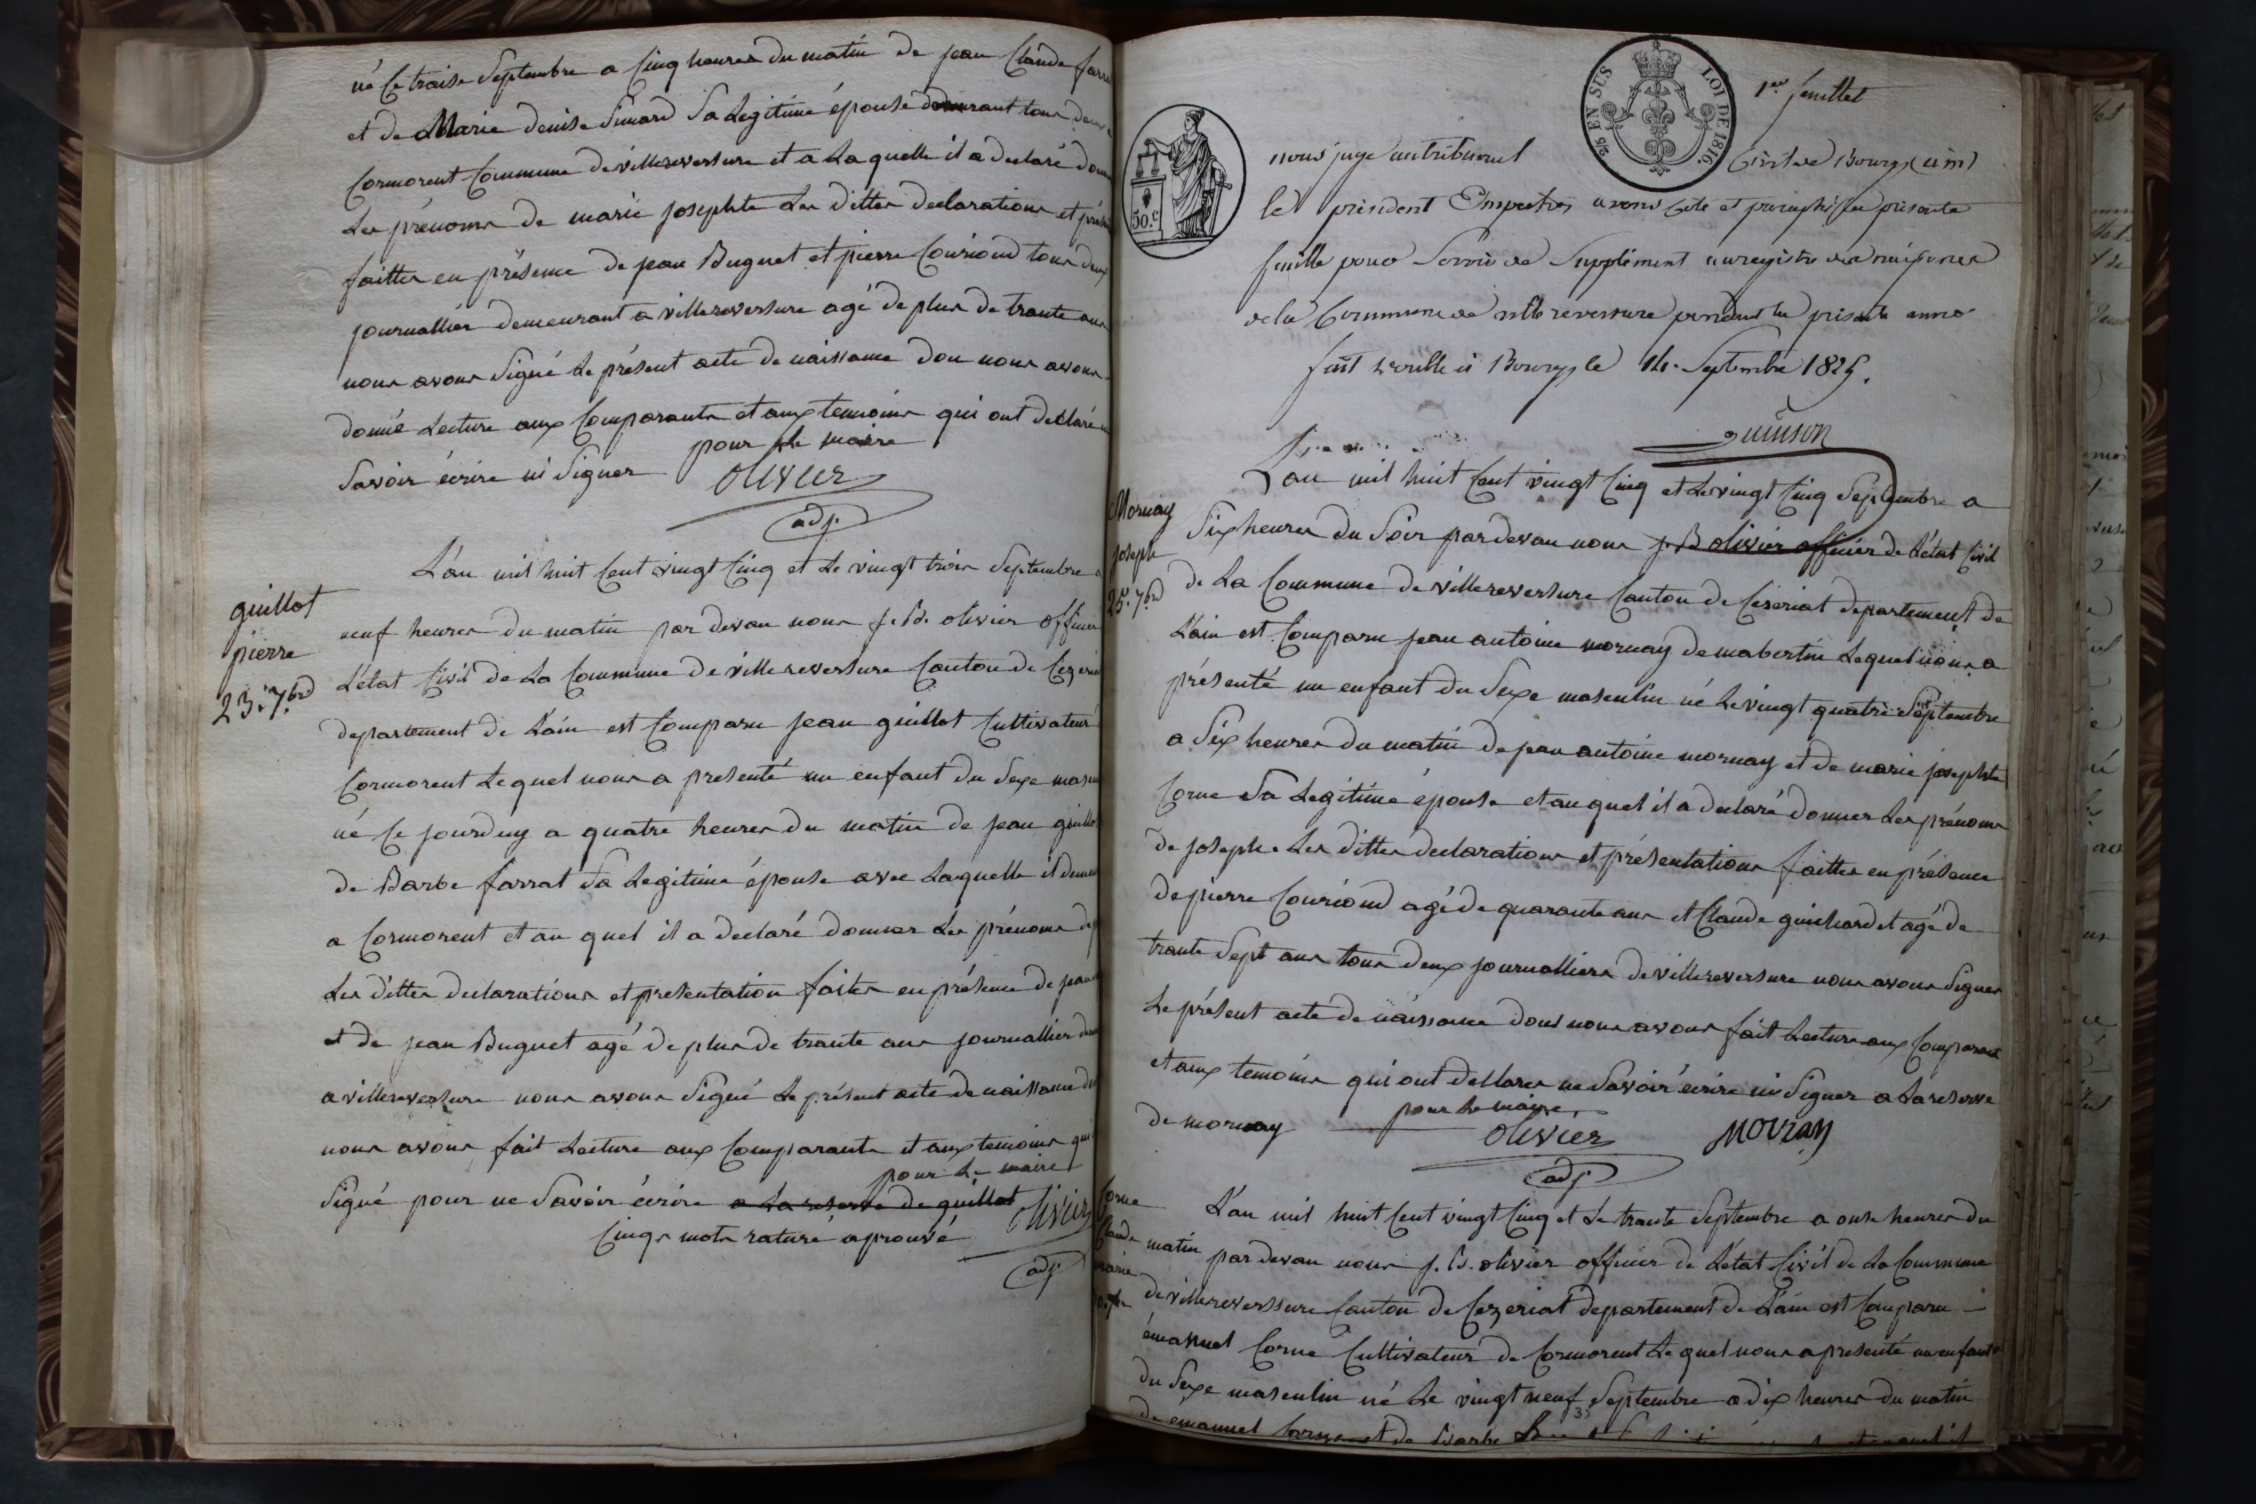 né Ce traise Septembre a Cinq heures du matin de jean Claude farr
et de Marie denise Simard Sa Legitime épouse demeurant tous deux
Cormorent Commune de villereversure et a La quelle il a declaré don
Les prénoms de marie josephte Les dittes declarations et prés
faittes en présence de jean Buguet et pierre Couriond tous deux
journallier demeurant a villereversure agé de plus de trante ans
nous avons Signé Le présent acte de naissance dou nous avons
donné Lecture aux Comparants et aux temoins qui ont declaré n
Savoir écrire ni Signer
pour Le maire
OLIVIER
adj.
guillot
pierre
23. 7bre
L'an mil huit Cent vingt Cinq et Le vingt trois Septembre a
neuf heures du matin par devan nous j. B. olivier officier
L'état Civil de La Commune de villereversure Canton de Cezeria
departement de L'ain est Comparu jean guillot Cultivateur
Cormorent Lequel nous a presenté un enfant du Sexe mascu
né Ce jourduy a quatre heures du matin de jean guillo
de Barbe farrat Sa Legitime épouse avec Laquelle il demeu
a Cormorent et au quel il a declaré donner Les prénoms de p
Les dittes declarations et presentation faites en présence de jean
et de jean Buguet agé de plus de trante ans journallier dem
a villereversure nous avons Signé Le présent acte de naissance do
nous avons fait Lecture aux Comparants et aux temoins qui
Signé pour ne Savoir écrire a La reserve de guillot
pour Le maire
OLIVIER
Cinqs mots raturé aprouvé
adj.
1er feuillet
25 EN SUS LOI DE 1816.
50.c
nous juge au tribunal Civil de Bourg (ain)
le président Empeché, avons Coté et paraphé la présente
feuille pour Servir de Supplément au registre des naissances
de la Commune de villereversure pendant la présente année
fait double à Bourg le 14. Septembre 1825.
Mornay
joseph
25. 7bre
L'an mil huit Cent vingt Cinq et Le vingt Cinq Septembre a
Six heures du Soir par devan nous j. B olivier officier de L'état Civil
de La Commune de villereversure Canton de Ceseriat departement de
L'ain est Comparu jean antoine mornay de Lequel nous a
présenté un enfant du Sexe masculin né Le vingt quatre Septembre
a Six heures du matin de jean antoine mornay et de marie josephte
Corne Sa Legitime épouse et au quel il a declaré donner Les prénoms
de joseph. Les dittes declarations et présentations faittes en présence
de pierre Couriond agé de quarante ans et Claude guichardet agé de
trante Sept ans tous deux journalliers de villereversure nous avons Signer
Le présent acte de naissance dont nous avons fait Lecture aux Comparant
et aux temoins qui ont declarer ne Savoir écrire ni Signer a La reserve
de mornay
pour Le maire
OLIVIER
adj
Corne
Claude
marie
L'an mil huit Cent vingt Cinq et Le trante Septembre a onse heures du
matin par devan nous j. B. olivier officier de L'état Civil de La Commune
de villereverssure Canton de Cezeriat departement de L'ain est Comparu
émanuel Corne Cultivateur de Cormorent Lequel nous a presenté un enfant
du Sexe masculin né Le vingt neuf Septembre a dix heures du matin
de emanuel Corne et de Barbe